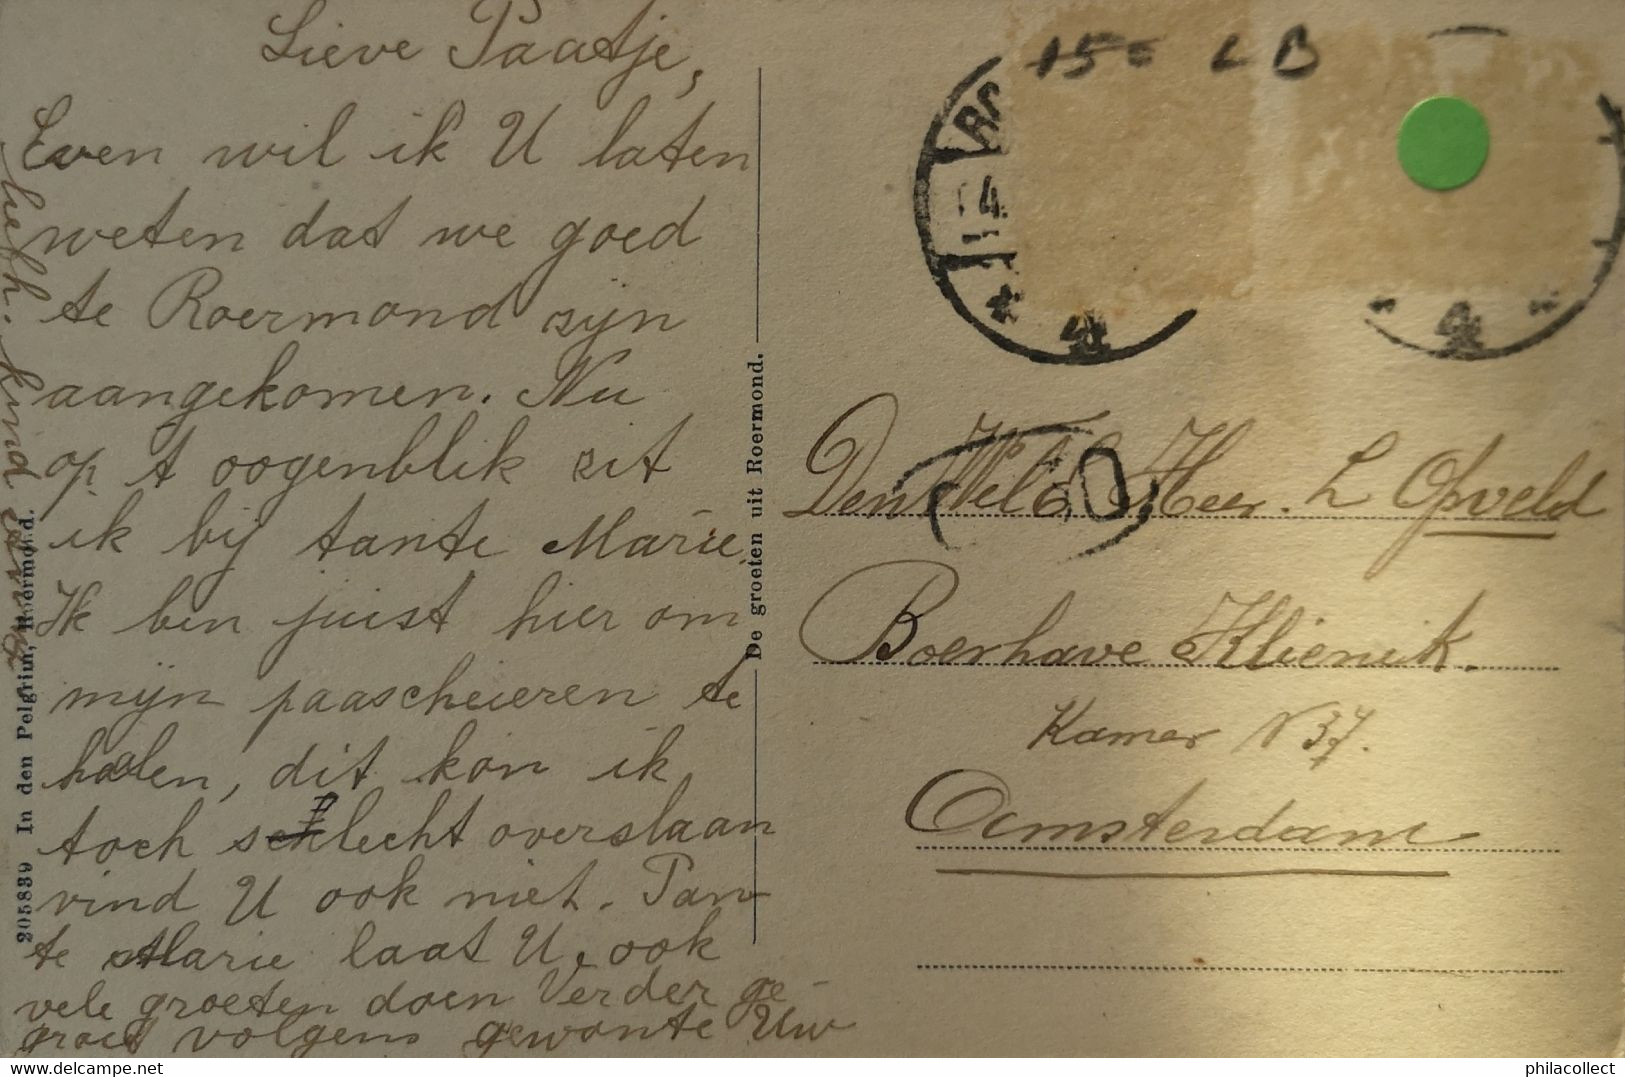 Lieve Paatje,
Even wil ik U laten
weten dat we goed
te Roermond zijn
aangekomen. Nu
op t oogenblik zit
ik bij tante Marie.
Ik ben juist hier om
mijn paascheieren te
halen, dit kon ik
toch slecht overslaan
vind U ook niet. Tan-
te Marie laat U ook
vele groeten doen Verder ge-
groet volgens gewonte Uw
liefh. kind
205839 In den Pelgrim, Roermond.
De groeten uit Roermond.
15= LB
RO
4.
4
4
Den Wel Ed Heer. L Opveld
Boerhave Klieniek.
Kamer N 37.
Amsterdam
philacollect.com
philacollect